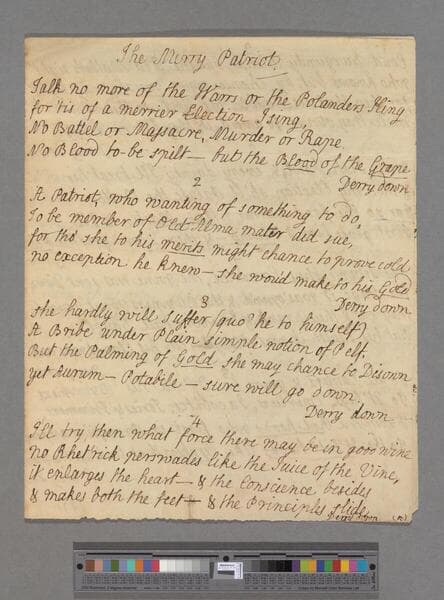 The Merry Patriot.
Talk no more of the Warrs or the Polanders King
for 'tis of a merrier Election I sing,
No Battel or Massacre, Murder or Rape
No Blood to be spilt — but the Blood of the Grape
Derry down
2
A Patriot, who wanting of something to do,
To be member of Old Alma mater did sue,
for tho' she to his merits might chance to prove cold
no exception he knew — she wou'd make to his Gold
Derry down
3
she hardly will suffer (quo' he to himself)
A Bribe under Plain simple notion of Pelf.
But the Palming of Gold she may chance to Disown
yet Aurum — Potabile — sure will go down.
Derry down
4
I'll try then what force there may be in good wine
no Rhet'rick perswades like the Juice of the Vine,
it enlarges the heart — & the Conscience besides
& makes both the feet — & the Principles slide.
Derry down